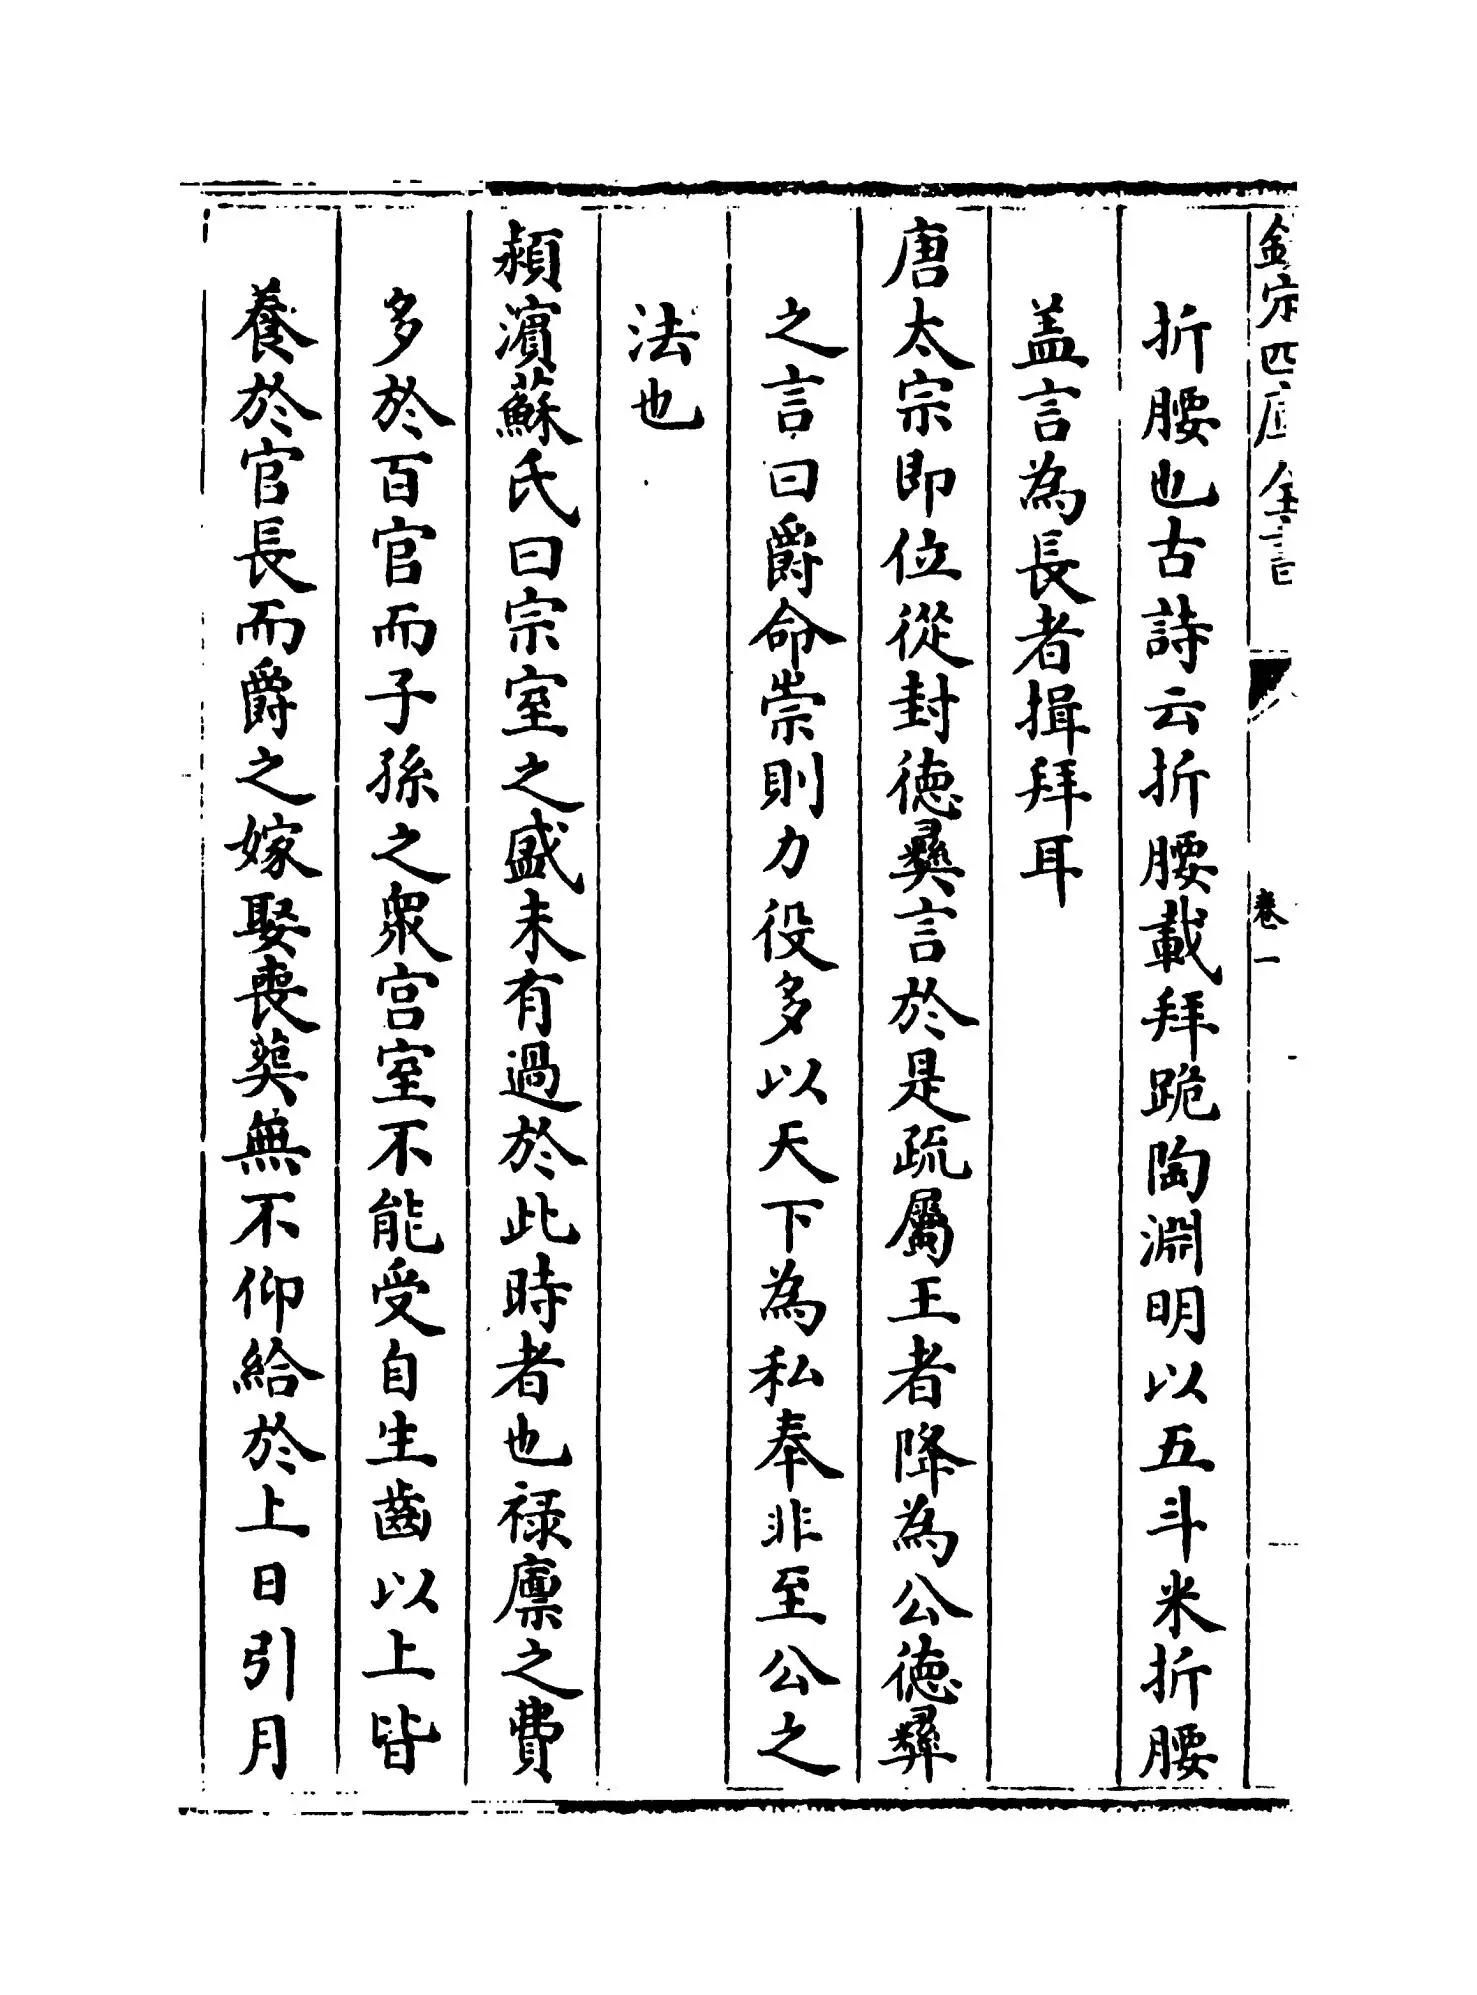 欽定四庫全書
卷一
折腰也古詩云折腰載拜跪陶淵明以五斗米折腰
盖言為長者揖拜耳
唐太宗即位從封徳彞言於是疏屬王者降為公徳彞
之言曰爵命崇則力役多以天下為私奉非至公之
法也
頴濵蘇氏曰宗室之盛未有過於此時者也禄廪之費
多於百官而子孫之衆宫室不能受自生齒以上皆
養於官長而爵之嫁娶喪葬無不仰給於上日引月